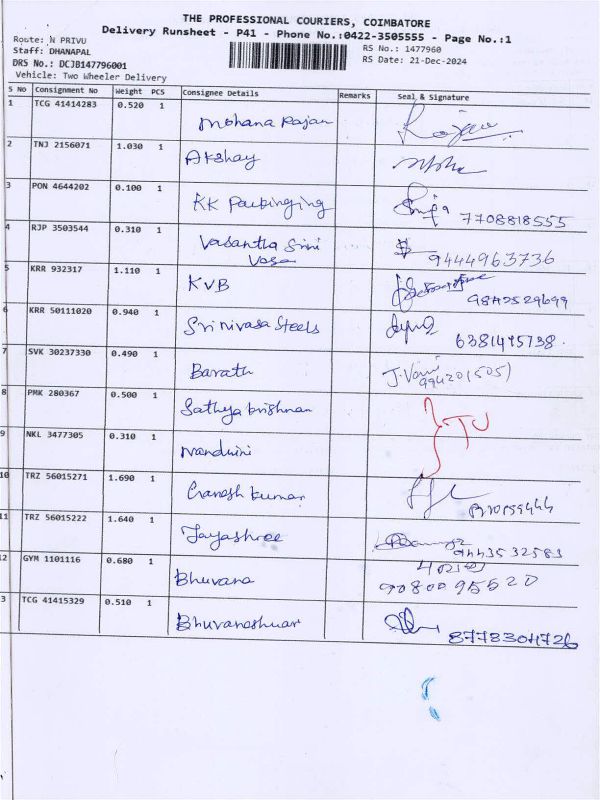 THE PROFESSIONAL COURIERS, COIMBATORE
Delivery Runsheet - P41 - Phone No.:0422-3505555 - Page No.:1
Route: N PRIVU
Staff: DHANAPAL
DRS No.: DCJB147796001
Vehicle: Two Wheeler Delivery
RS No.: 1477960
RS Date: 21-Dec-2024
S No Consignment No Weight PCS Consignee Details Remarks Seal & Signature
1 TCG 41414283 0.520 1 Mohana Rajan
2 TNJ 2156071 1.030 1 Akshay
3 PON 4644202 0.100 1 KK Packinging 7708818555
4 RJP 3503544 0.310 1 Vasantha Srini 9444963736
Vasa
5 KRR 932317 1.110 1 KVB 9842529699
6 KRR 50111020 0.940 1 Srinivasa Steels
7 SVK 30237330 0.490 1 Barath J. Vani
8 PMK 280367 0.500 1 Sathya krishnan
9 NKL 3477305 0.310 1 Nandhini
10 TRZ 56015271 1.690 1 Ganesh kumar
11 TRZ 56015222 1.640 1 Jayashree 9443532583
12 GYM 1101116 0.680 1 Bhuvana 9080095520
3 TCG 41415329 0.510 1 Bhuvaneshwar 8778304726